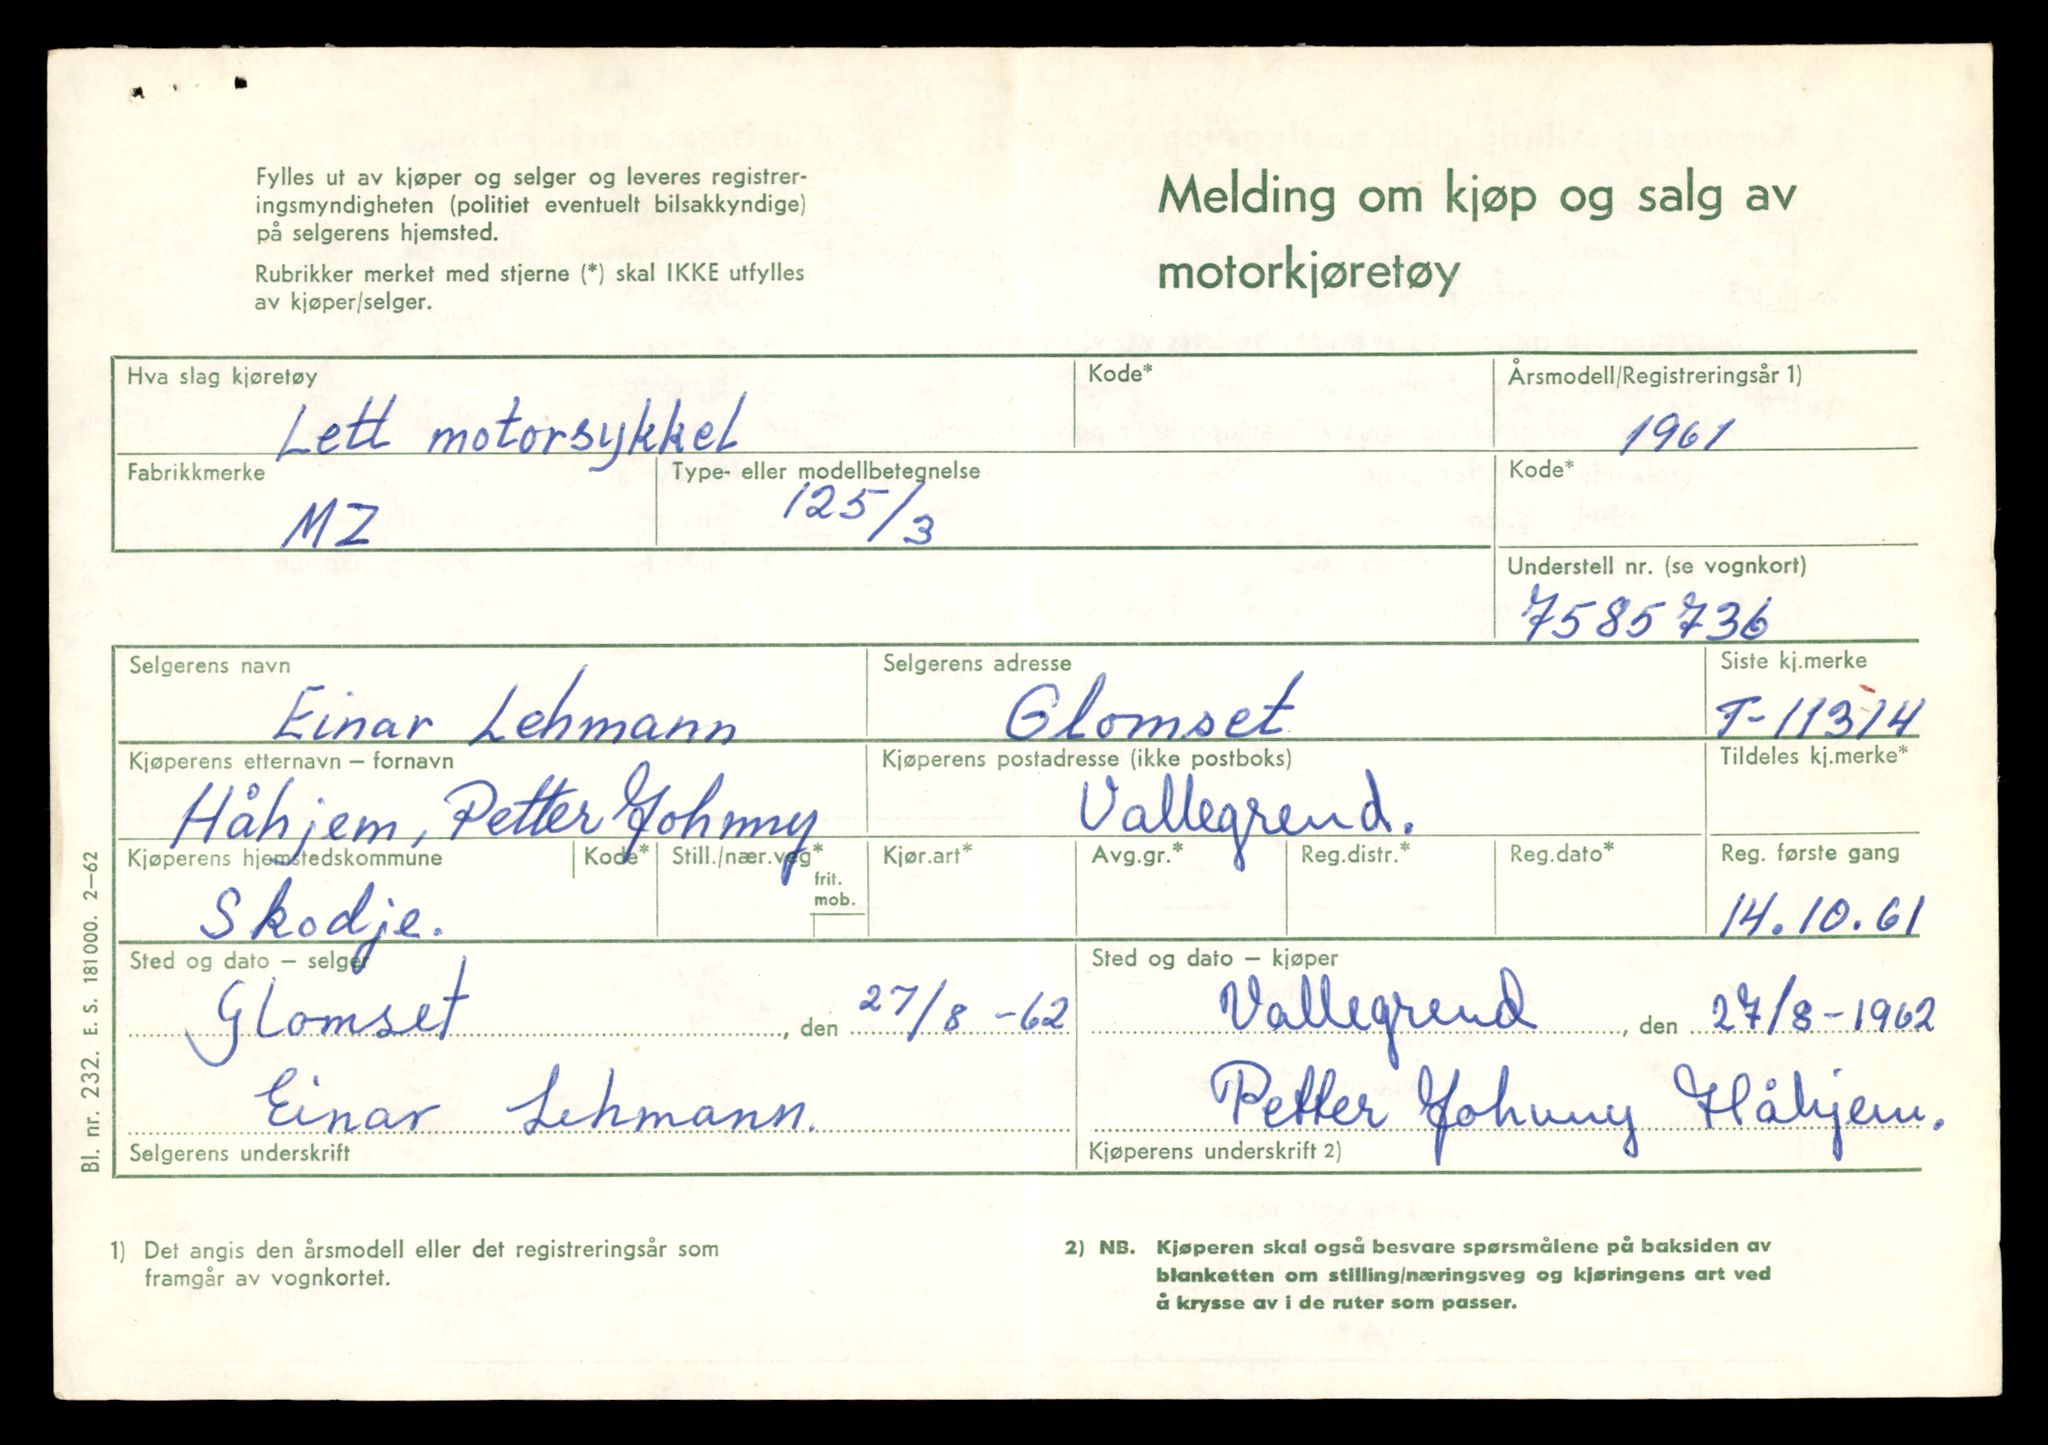 Fylles ut av kjøper og selger og leveres registrer-
ingsmyndigheten (politiet eventuelt bilsakkyndige)
på selgerens hjemsted.
Rubrikker merket med stjerne (*) skal IKKE utfylles
av kjøper/selger.
Melding om kjøp og salg av
motorkjøretøy
Hva slag kjøretøy
Kode*
Årsmodell/Registreringsår 1)
Lett motorsykkel
1961
Fabrikkmerke
Type- eller modellbetegnelse
Kode*
MZ
125/3
Understell nr. (se vognkort)
7585736
Selgerens navn
Selgerens adresse
Siste kj.merke
Einar Lehmann
Glomset
T-11314
Kjøperens etternavn – fornavn
Kjøperens postadresse (ikke postboks)
Tildeles kj.merke*
Håhjem, Petter Johnny
Vallegrend.
Kjøperens hjemstedskommune
Kode*
Still./nær.veg*
frit.
mob.
Kjør.art*
Avg.gr.*
Reg.distr.*
Reg.dato*
Reg. første gang
Skodje.
14.10.61
Sted og dato – selger
Sted og dato – kjøper
Glomset, den 27/8 -62
Vallegrend, den 27/8-1962
Einar Lehmann.
Petter Johnny Håhjem.
Selgerens underskrift
Kjøperens underskrift 2)
1) Det angis den årsmodell eller det registreringsår som
framgår av vognkortet.
2) NB. Kjøperen skal også besvare spørsmålene på baksiden av
blanketten om stilling/næringsveg og kjøringens art ved
å krysse av i de ruter som passer.
Bl. nr. 232. E. S. 181000. 2–62